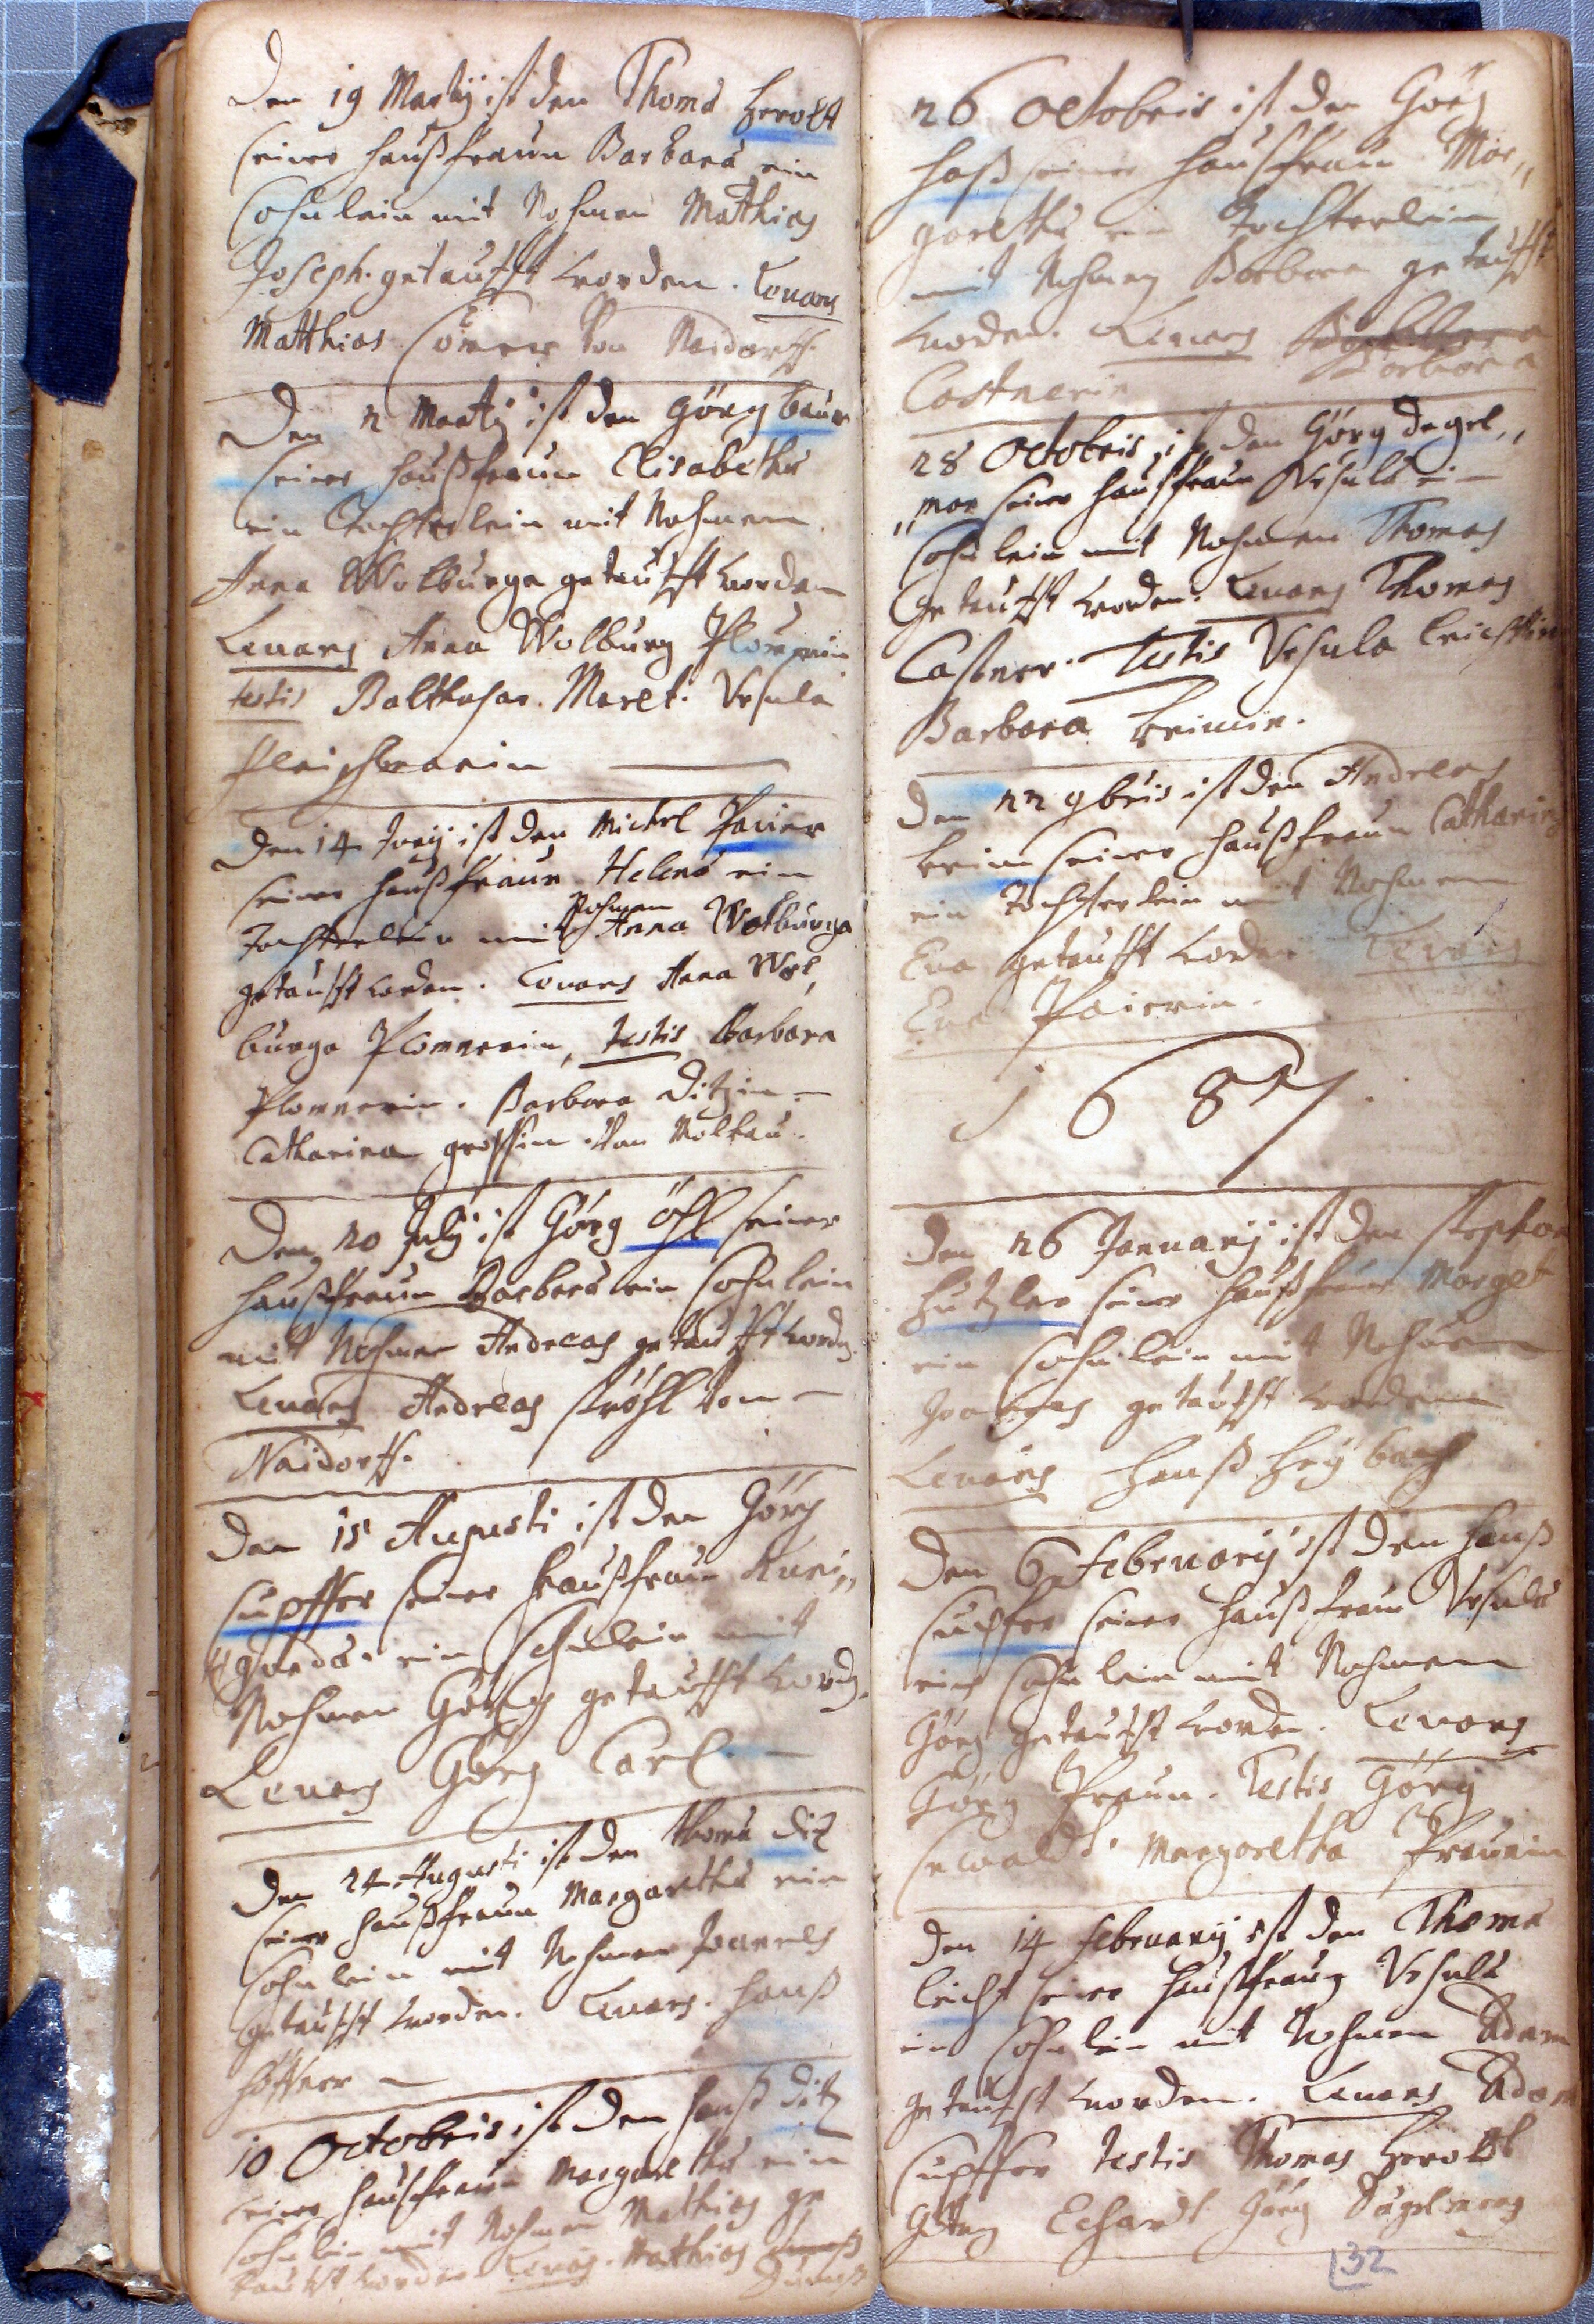 Den 19 Martij ist den Thoma Herolt
seiner haußfraun Barbara ein
sohnlein mit Nahmen Mathias
Joseph. getaufft worden. Levans
Matthias von Naidorff.
Den 2 Martij ist den Görg baur
seiner haußfraun Elisabetha
ein Tochterlein mit Nahmen
Anna Wolburga getaufft worden
Levans Anna Wolburg Plomerin
testis Balthasar. Maret. Vrsula
Den 14 Junij ist den Michel Paier
seiner haußfraun Helena ein
Nahmen
Tochterlein mit Anna Wolburga
getaufft worden. Levans Anna Wol,
burga Plomnerin, testis Barbara
Plomnerin. Barbara Ditzin
Catharina großin von Molkau.
Den 20 Julij ist Görg öhl seiner
haußfraun Barbara ein sohnlein
mit Nahmen Andreas getaufft word.
Levans Andreas ströhl von
Naidorff.
Den 15 Augusti ist den Görg
supffer seiner haußfraun Kuni,,
gunda. ein sohnlein mit
Nahmen Görg getaufft word.
Levans Görg Carl
Den 24 Augusti ist den Thoma Ditz
seiner haußfraun Margaretha ein
sohnlein mit Nahmen Joannes
getaufft worden. Levans. hanß
höffner
10 Octobris ist den hanß ditz
seiner haußfraun Margaretha ein
sohnlein mit Nahmen Mathias ge
taufft worden Levans. Mathias
26 Octobris ist den Görg
haß seiner haußfraun Mar,,
garetha ein Tochterlein
mit Nahmen Barbara getaufft
worden. Levans Barbara
Castnerin
28 Octobris ist den Görg degel,,
,,mar seiner haußfraun Vrsula ein
sohnlein mit Nahmen Thomas
getaufft worden. Levans Thomas
Castner. Testis Vrsula leichtin
Barbara keimin.
Den 22 9bris ist den Andreas
keim seiner haußfraun Catharina
ein Tochterlein mit Nahmen
Eva getaufft worden. Levans
Eva Paierin.
1687.
Den 26 Januarij ist den stephan
hutzler seiner haußfraun Marget
ein sohnlein mit Nahmen
Joannes getaufft worden
Levans hanß heybach
Den 6 Februarij ist den hanß
supffer seiner haußfraun Vrsula
ein sohnlein mit Nahmen
Görg getaufft worden. Levans
Görg Praun. Testis Görg
sewaldt. Margaretha Praunin
Den 14 februarij ist den Thoma
leicht seiner haußfraun Vrsula
ein sohnlein mit Nahmen Adam
getaufft worden. Levans Adam
supffer testis Thomas Herolt
Görg Echardt Görg Dägelmang
132